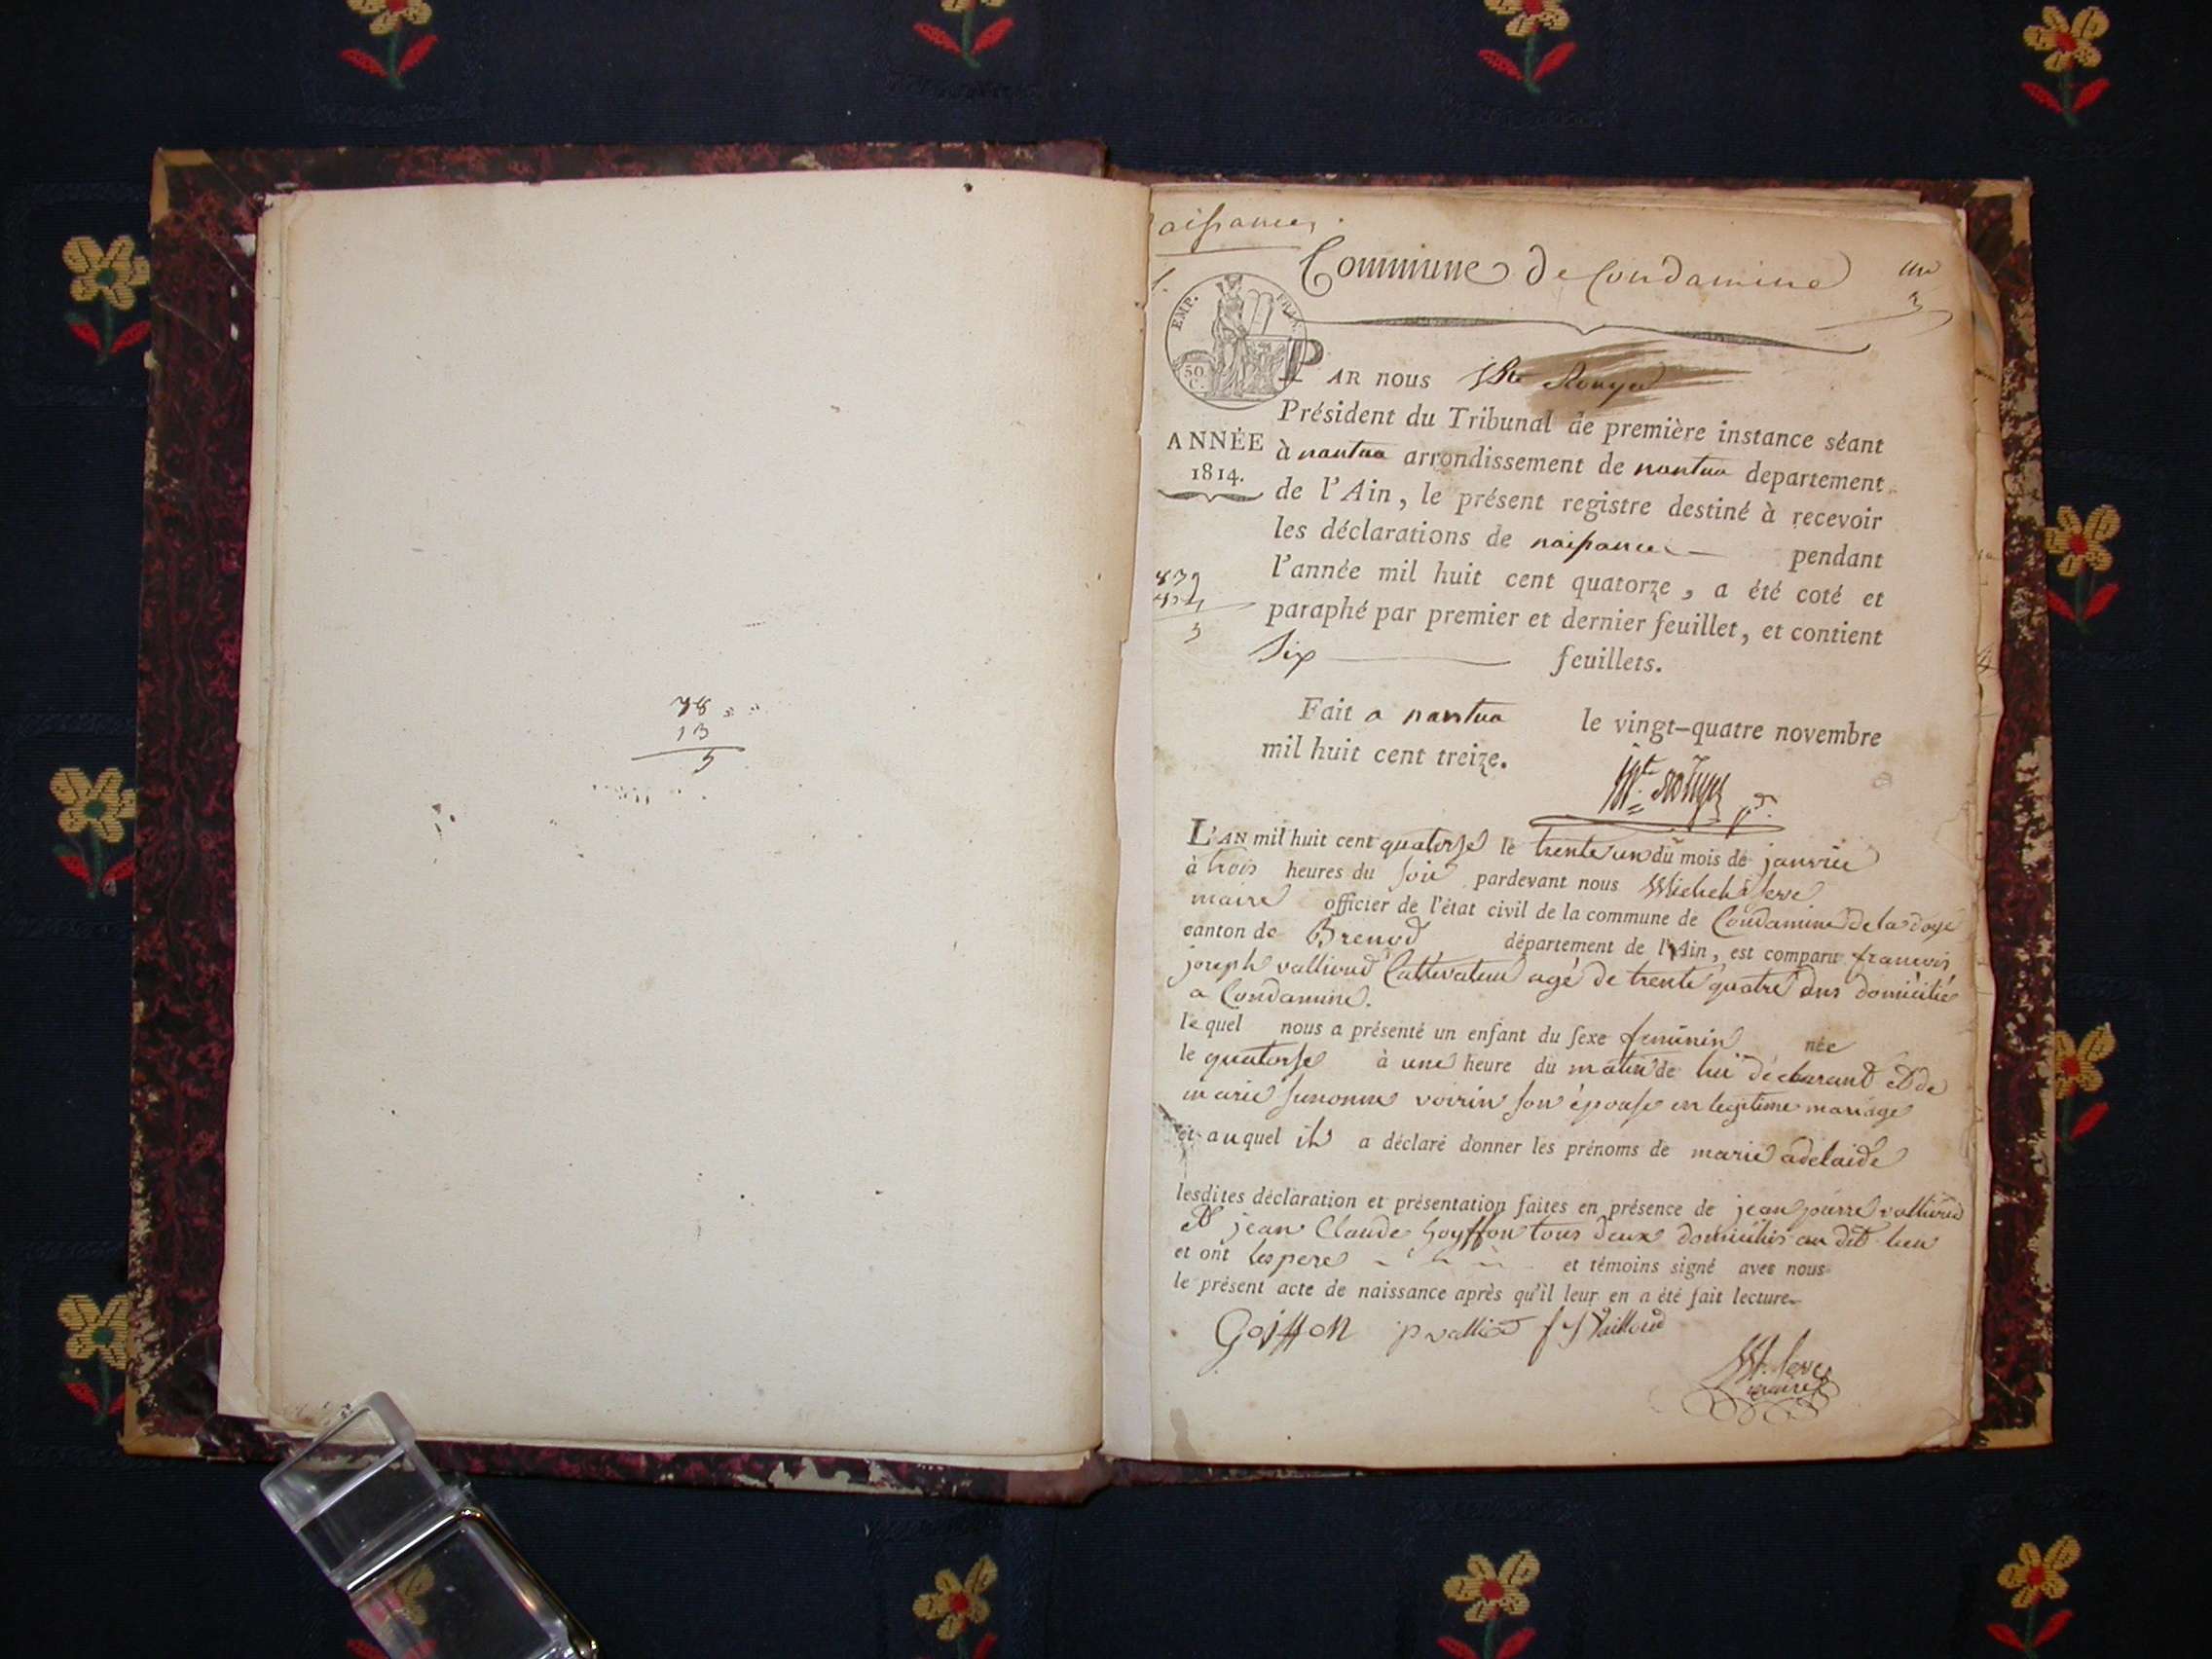 78
13
5
aissances
Commune de Condamine
un
1.
EMP. FRAN.
50
C.
PAR nous
Président du Tribunal de première instance séant
ANNÉE
1814.
à nantua arrondissement de nantua departement
de l'Ain, le présent registre destiné à recevoir
les déclarations de naissances — pendant
l'année mil huit cent quatorze, a été coté et
paraphé par premier et dernier feuillet, et contient
Six feuillets.
Fait a nantua le vingt-quatre novembre
mil huit cent treize.
L'AN mil huit cent quatorse le trente un du mois de janvier
à trois heures du soir pardevant nous Michel
maire officier de l'état civil de la commune de Condamine de la doye
canton de Brenod département de l'Ain, est comparu francois
joseph vallioud Cultivateur agé de trente quatre ans domicilié
a Condamine.
lequel nous a présenté un enfant du sexe feminin née
le quatorse à une heure du matin de lui déclarant et de
marie voirin son épouse en legitime mariage
et auquel il a déclaré donner les prénoms de marie adelaide
lesdites déclaration et présentation faites en présence de jean pierre vallioud
et jean Claude goyffon tous deux domiciliés au dit lieu
et ont les pere et témoins signé avec nous
le présent acte de naissance après qu'il leur en a été fait lecture.
Goiffon p valliod f j Vallioud
maire